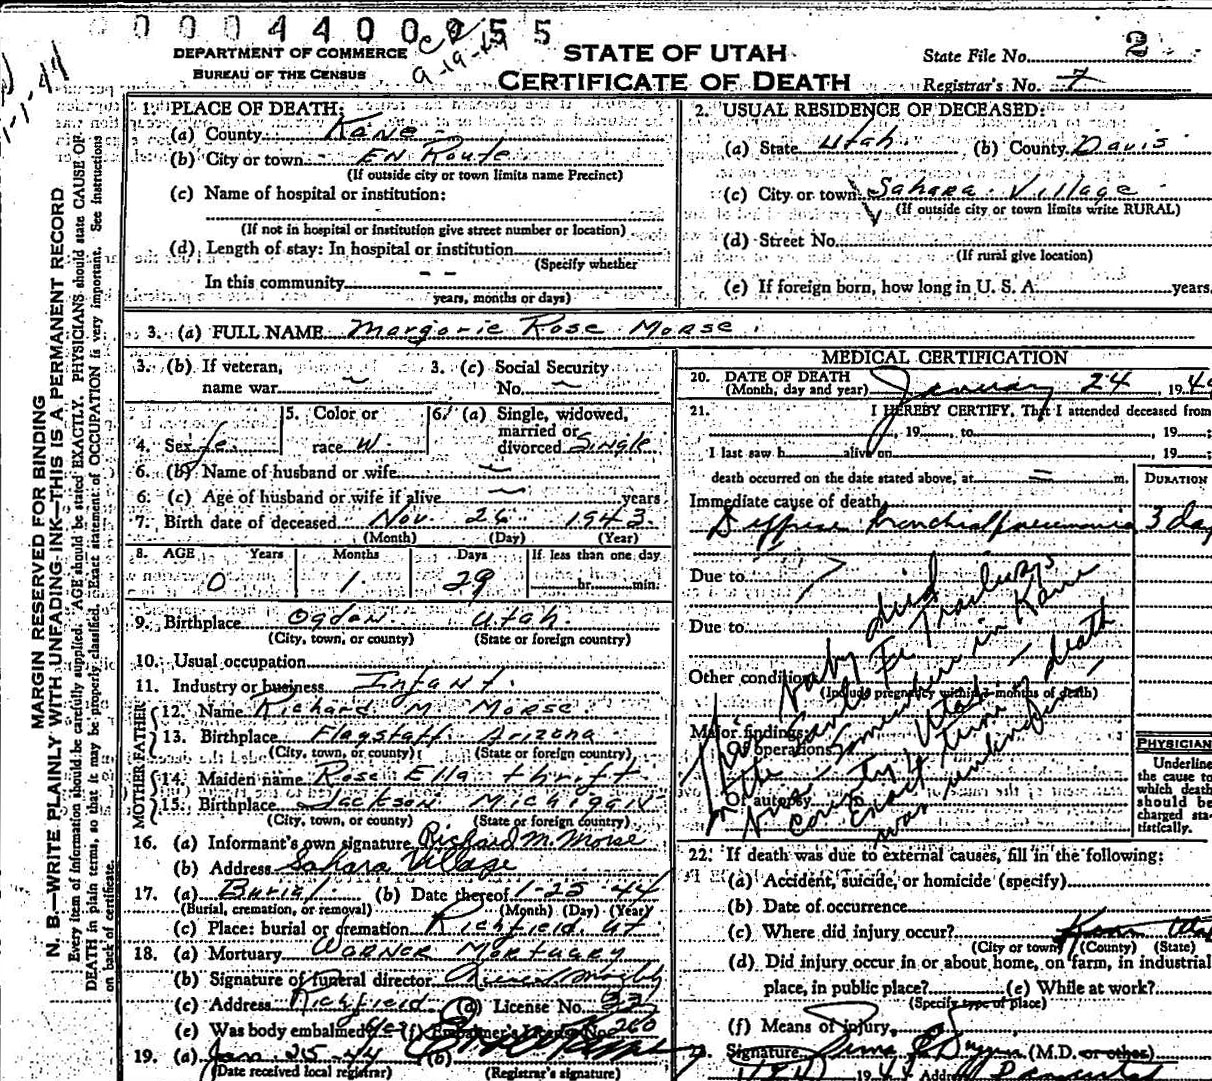 0 0 0 4 4 0 0 2 5 5
9-19-44
DEPARTMENT OF COMMERCE
BUREAU OF THE CENSUS
STATE OF UTAH
CERTIFICATE OF DEATH
State File No. 2
Registrar's No. 7
MARGIN RESERVED FOR BINDING
N. B.—WRITE PLAINLY WITH UNFADING INK—THIS IS A PERMANENT RECORD
Every item of information should be carefully supplied. AGE should be stated EXACTLY. PHYSICIANS should state CAUSE OF
DEATH in plain terms, so that it may be properly classified. Exact statement of OCCUPATION is very important. See instructions
on back of certificate.
1. PLACE OF DEATH:
(a) County Kane
(b) City or town En Route
(If outside city or town limits name Precinct)
(c) Name of hospital or institution:
(If not in hospital or institution give street number or location)
(d) Length of stay: In hospital or institution
(Specify whether
In this community - -
years, months or days)
2. USUAL RESIDENCE OF DECEASED:
(a) State Utah (b) County Davis
(c) City or town Sahara Village
(If outside city or town limits write RURAL)
(d) Street No.
(If rural give location)
(e) If foreign born, how long in U. S. A. years.
3. (a) FULL NAME Margorie Rose Morse
3. (b) If veteran, name war
3. (c) Social Security No.
4. Sex fe.
5. Color or race W.
6. (a) Single, widowed, married or divorced Single
6. (b) Name of husband or wife
6. (c) Age of husband or wife if alive years
7. Birth date of deceased Nov. 26 1943.
(Month) (Day) (Year)
8. AGE Years Months Days If less than one day
0 1 29 hr. min.
9. Birthplace Ogden Utah.
(City, town, or county) (State or foreign country)
10. Usual occupation
11. Industry or business Infant.
FATHER
12. Name Richard M Morse
13. Birthplace Flagstaff Arizona
(City, town, or county) (State or foreign country)
MOTHER
14. Maiden name Rose Ella thrift
15. Birthplace Jackson Michigan
(City, town, or county) (State or foreign country)
16. (a) Informant's own signature Richard M. Morse
(b) Address Sahara Village
17. (a) Burial (b) Date thereof 1-25-44
(Burial, cremation, or removal) (Month) (Day) (Year)
(c) Place: burial or cremation Richfield, Ut
18. (a) Mortuary Warner Mortuary
(b) Signature of funeral director
(c) Address Richfield (d) License No. 33
(e) Was body embalmed? (f) Embalmer's License No. 260
19. (a) Jan 25-44 (b)
(Date received local registrar) (Registrar's signature)
MEDICAL CERTIFICATION
20. DATE OF DEATH
(Month, day and year) January 24, 194
21. I HEREBY CERTIFY, That I attended deceased from
, 19 , to , 19 ;
I last saw h alive on , 19 ;
death occurred on the date stated above, at m.
DURATION
Immediate cause of death
Diffuse bronchial pneumonia 3 day
Due to
Due to
Other conditions
(Include pregnancy within 3 months of death)
Major findings:
Of operations
Of autopsy
This baby died
in the Santa Fe Trailways
bus somewhere in Kane
County, Utah —
Exact time death
was undefined —
PHYSICIAN
Underline
the cause to
which death
should be
charged sta-
tistically.
22. If death was due to external causes, fill in the following:
(a) Accident, suicide, or homicide (specify)
(b) Date of occurrence
(c) Where did injury occur?
(City or town) (County) (State)
(d) Did injury occur in or about home, on farm, in industrial
place, in public place? (e) While at work?
(Specify type of place)
(f) Means of injury
Signature (M.D. or other)
1944 Address